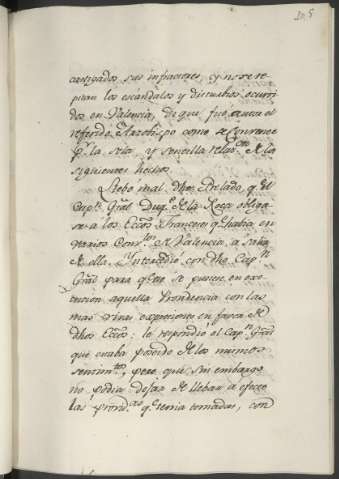 castigados sus infractores, y no se re
pitan los escándalos y disturbios ocurri
dos en Valencia, de que fué autor el
referido Arzobispo como se convence
pr. la sola, y sencilla relaon. de los
siguientes hechos.
Llebó mal dho Prelado, qe. el
Capn. Gral Duqe. de la Roca obliga
se a los Eccos. Franceses qe. habia en
varios Convtos. de Valencia, a salir
de ella. Intercedió con dho Capn
Gral para qe. no se pusiese en exe
cucion aquella Providencia con las
mas vivas expresiones en favor de
dhos Eccos: le respondió el Capn. Gral
que estaba poseido de los mismos
sentimtos., pero que sin embargo
no podia dejar de llebar a efecto
las providas. qe. tenia tomadas, con